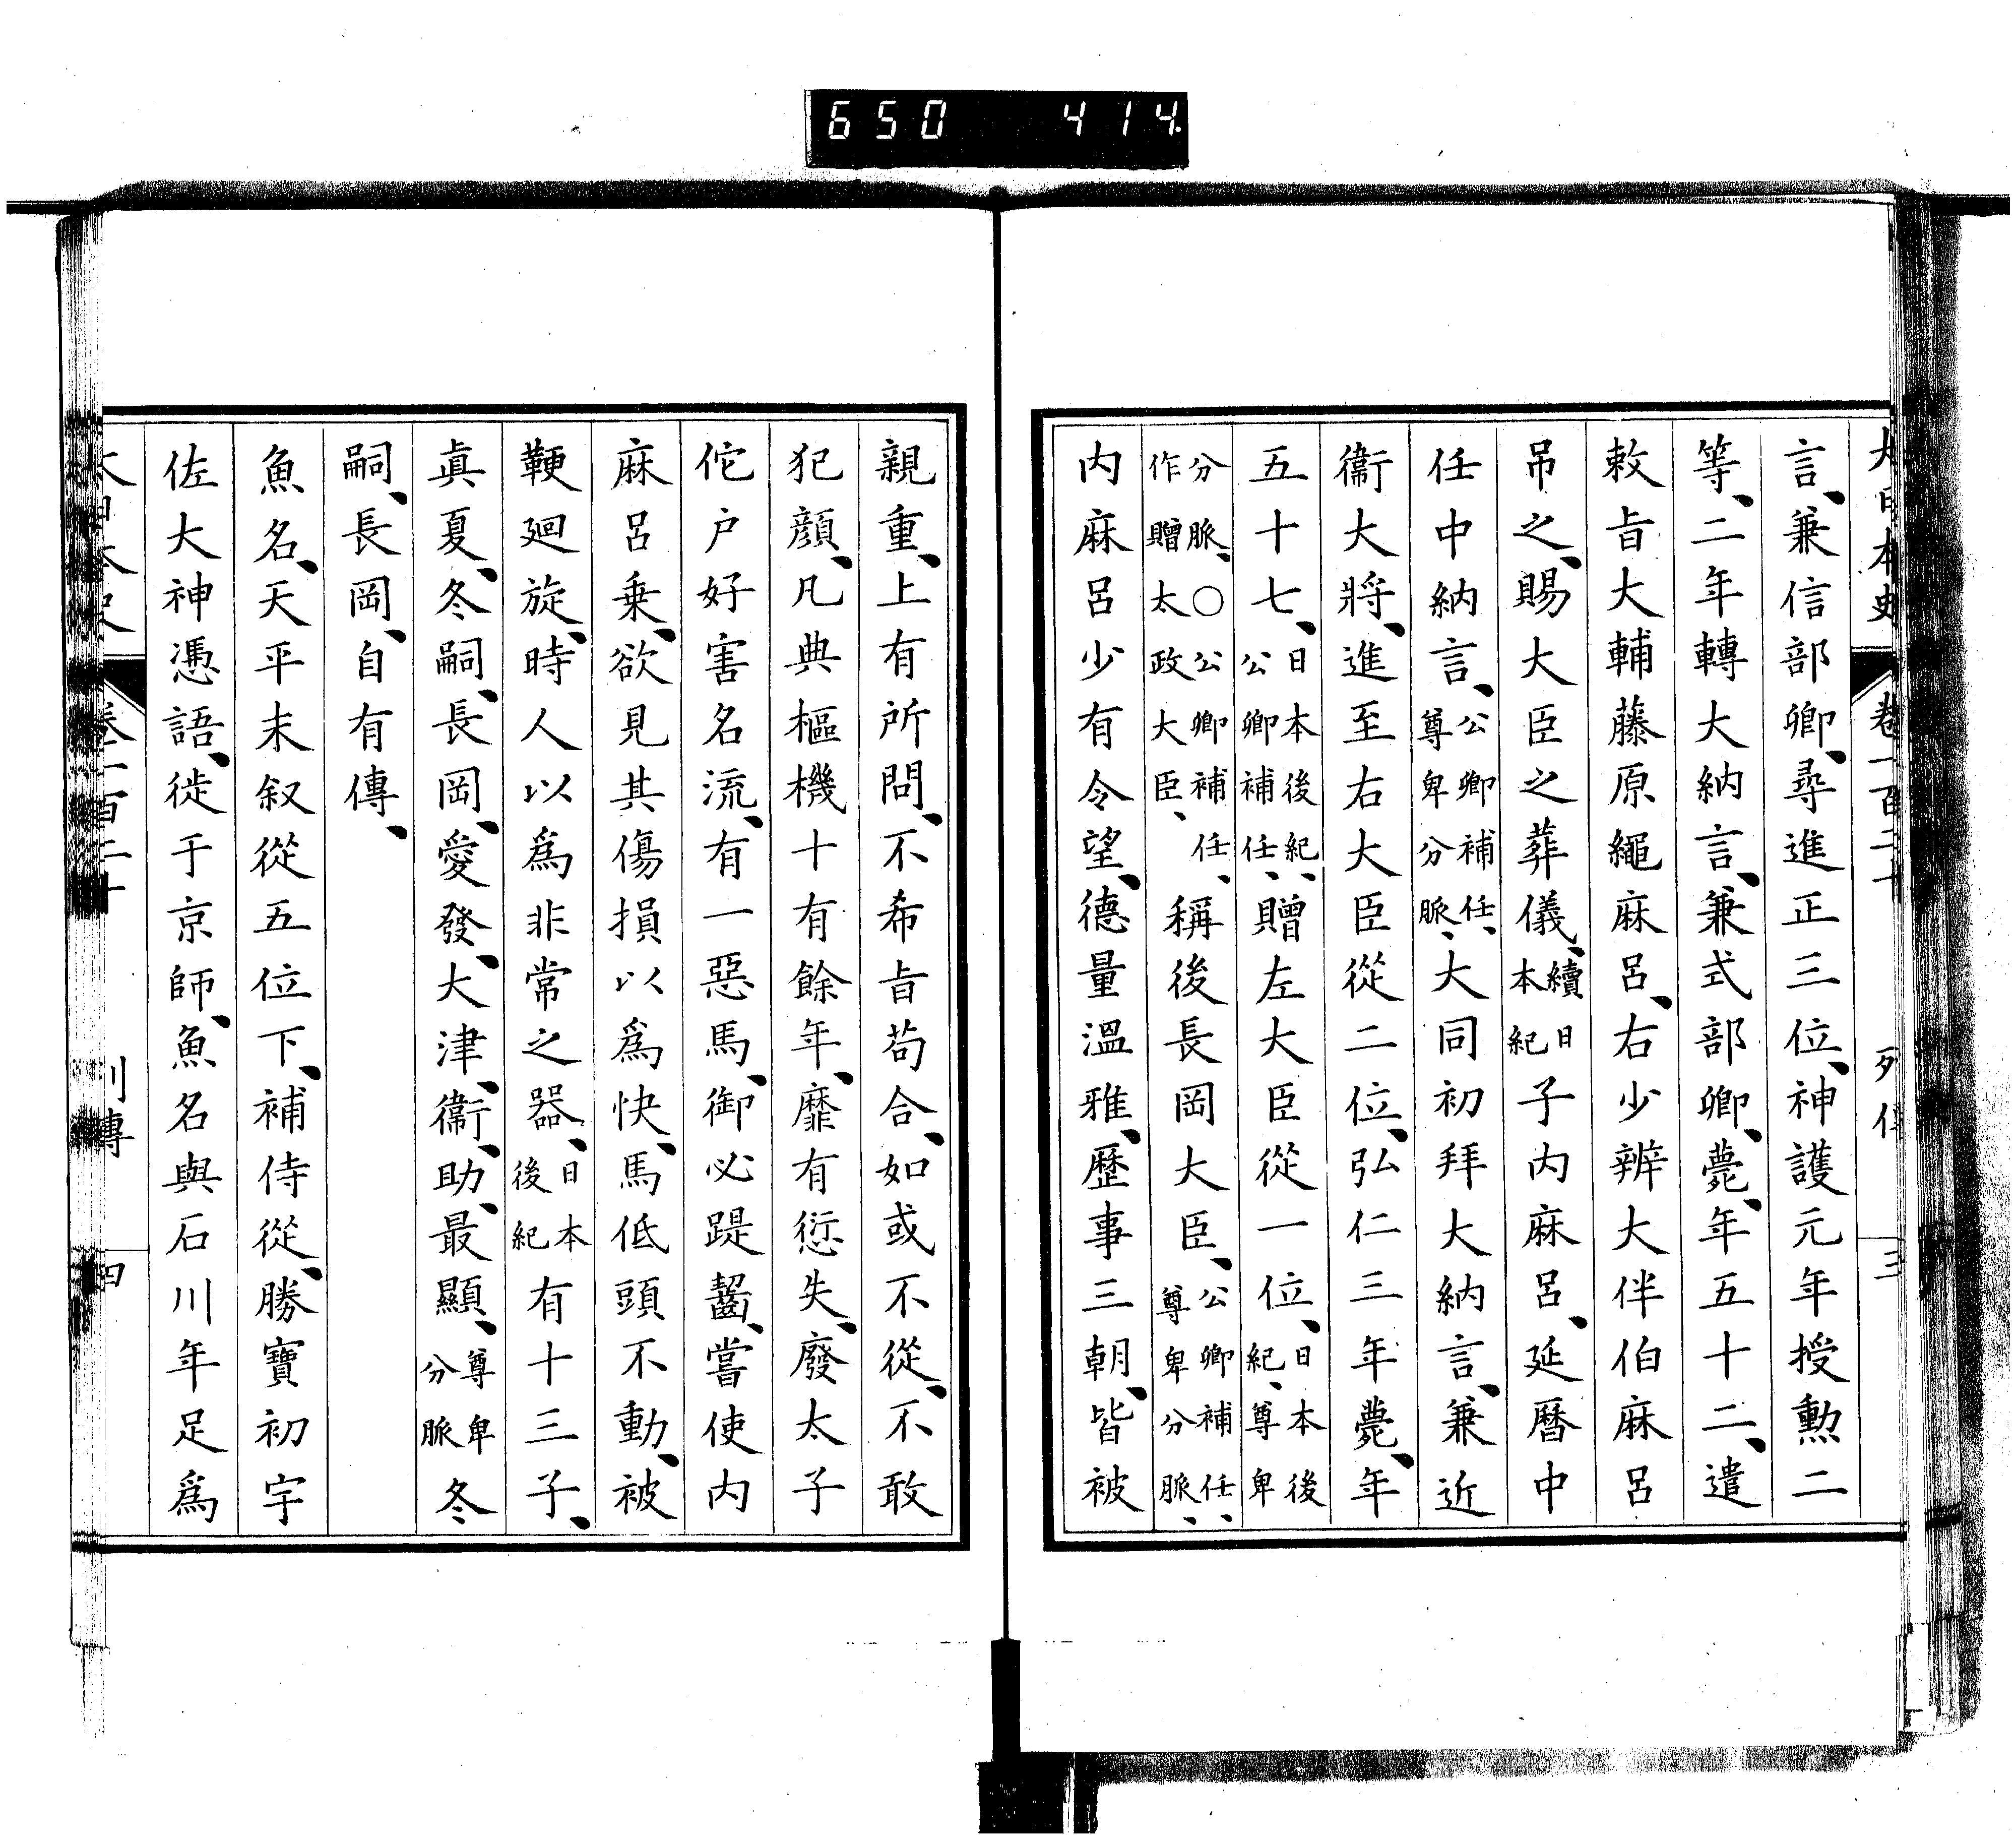 650 414.
大日本史 卷一百二十 列傳 三
言、兼信部卿、尋進正三位、神護元年授勲二
等、二年轉大納言、兼式部卿、薨、年五十二、遣
敕旨大輔藤原繩麻呂、右少辨大伴伯麻呂
吊之、賜大臣之葬儀、續日本紀子内麻呂、延曆中
任中納言、公卿補任、尊卑分脈、大同初拜大納言、兼近
衞大將、進至右大臣從二位、弘仁三年薨、年
五十七、日本後紀、公卿補任、贈左大臣從一位、日本後紀、尊卑
分脈、〇公卿補任、作贈太政大臣、稱後長岡大臣、公卿補任、尊卑分脈、
内麻呂少有令望、德量溫雅、歷事三朝、皆被
親重、上有所問、不希旨苟合、如或不從、不敢
犯顔、凡典樞機十有餘年、靡有愆失、廢太子
佗戸好害名流、有一惡馬、御必踶齧、嘗使内
麻呂乗、欲見其傷損以爲快、馬低頭不動、被
鞭廻旋、時人以爲非常之器、日本後紀有十三子、
眞夏、冬嗣、長岡、愛發、大津、衞、助、最顯、尊卑分脈冬
嗣、長岡、自有傳、
魚名、天平末叙從五位下、補侍從、勝寶初宇
佐大神憑語、徙于京師、魚名與石川年足爲
大日本史 卷一百二十 列傳 四